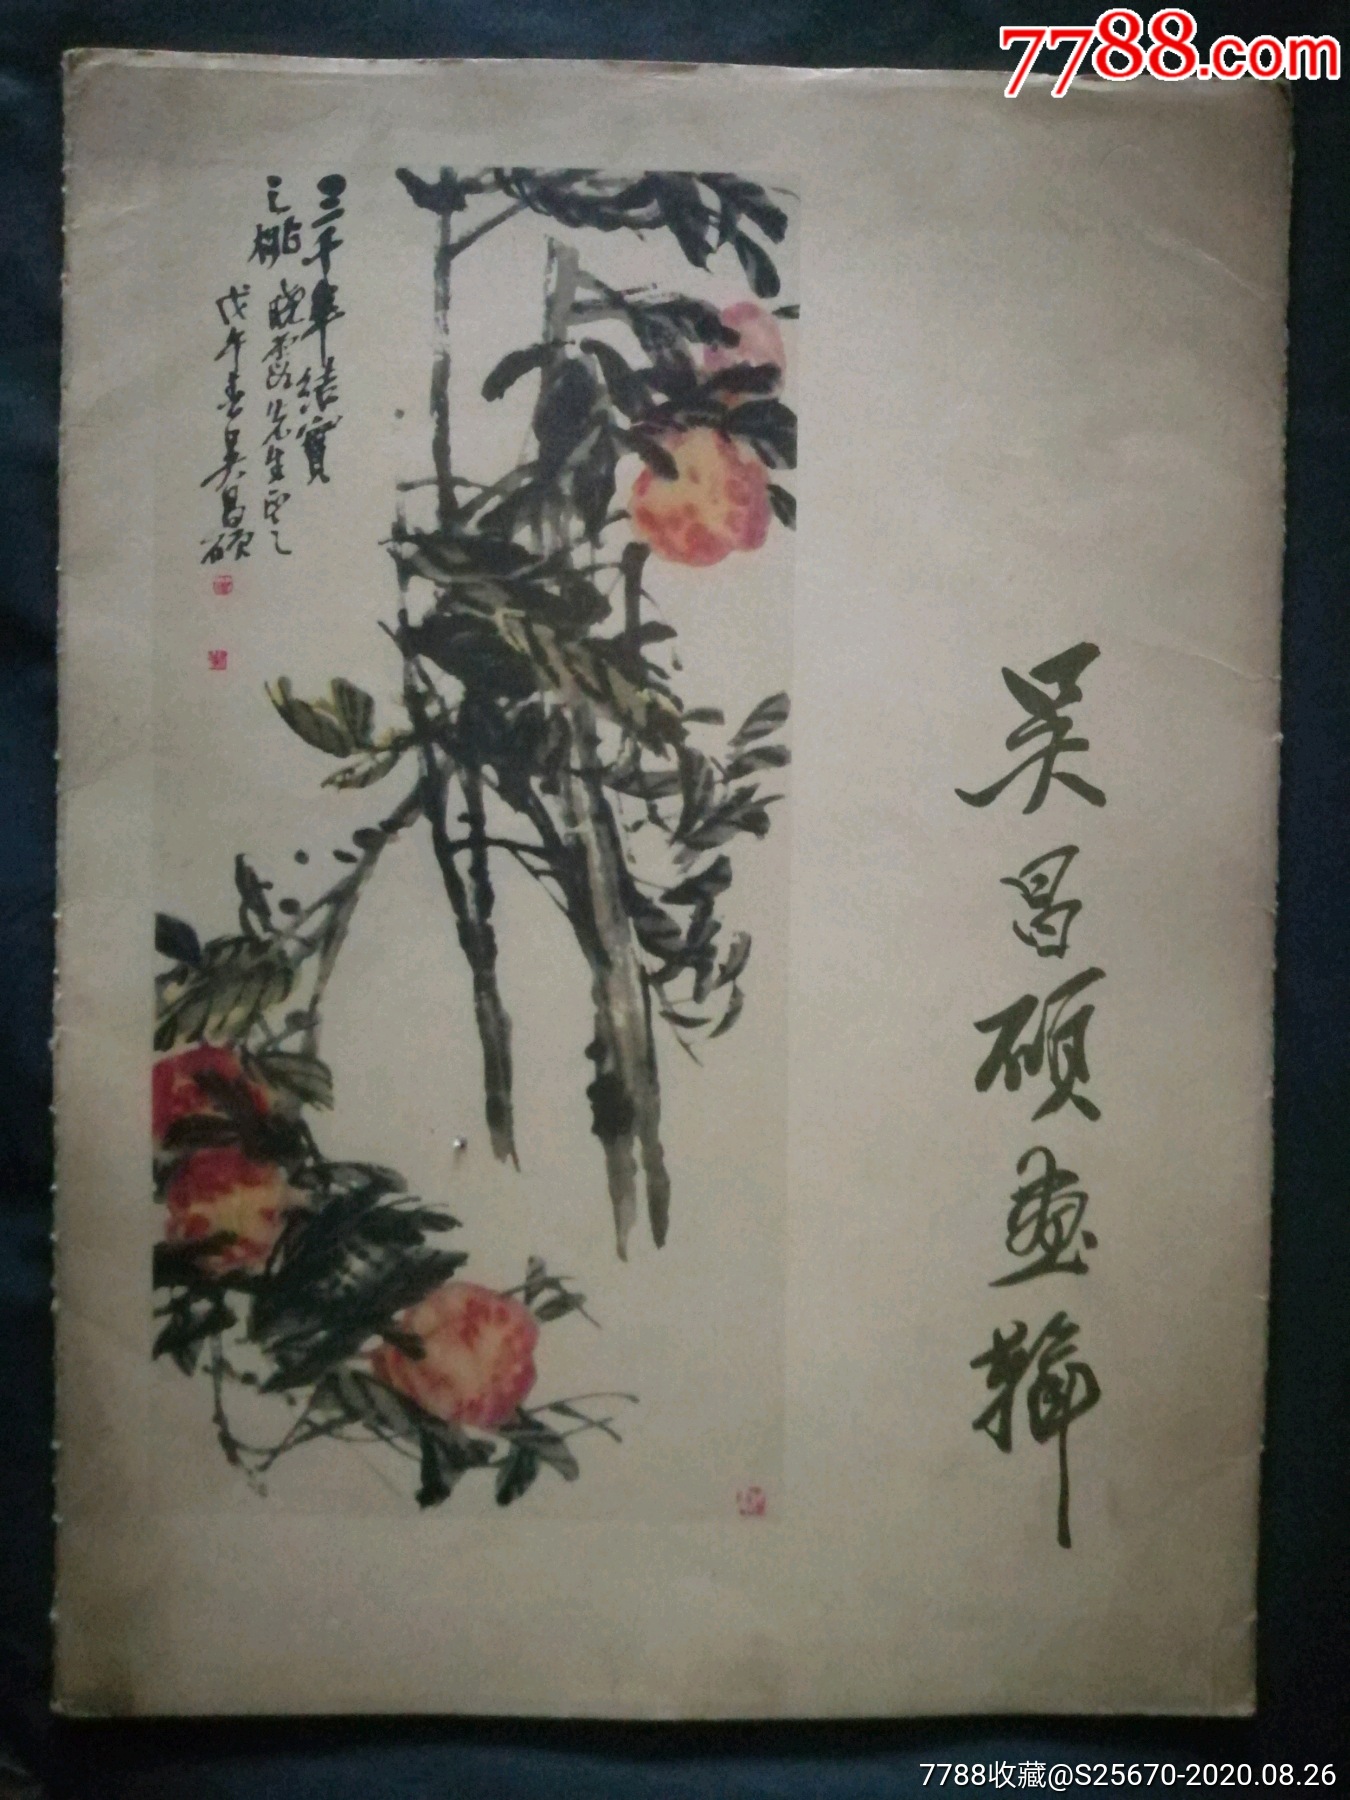 7788.com
三千年结實
之桃 晓霞先生正之
戊午春吴昌硕
吴昌硕画辑
7788收藏@S25670-2020.08.26